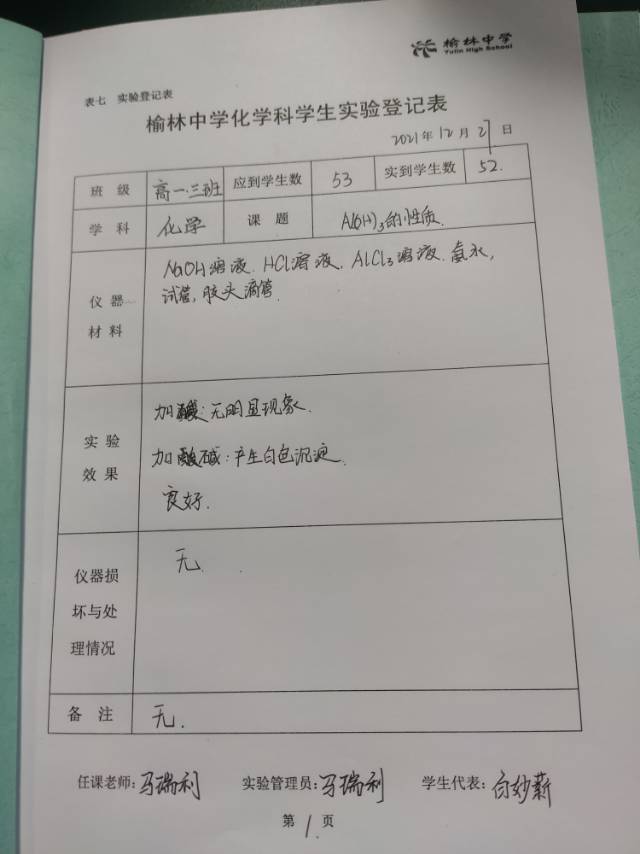 榆林中学
Yulin High School
表七 实验登记表
榆林中学化学科学生实验登记表
2021年12月27日
班 级 高一.三班 应到学生数 53 实到学生数 52.
学 科 化学 课 题 Al(OH)3的性质.
仪 器 材 料
NaOH溶液. HCl溶液. AlCl3溶液. 氨水,
试管, 胶头滴管.
实 验 效 果
加酸: 无明显现象.
加碱: 产生白色沉淀.
良好.
仪器损坏与处理情况
无.
备 注 无.
任课老师: 马瑞利 实验管理员: 马瑞利 学生代表: 白妙薪
第 1. 页